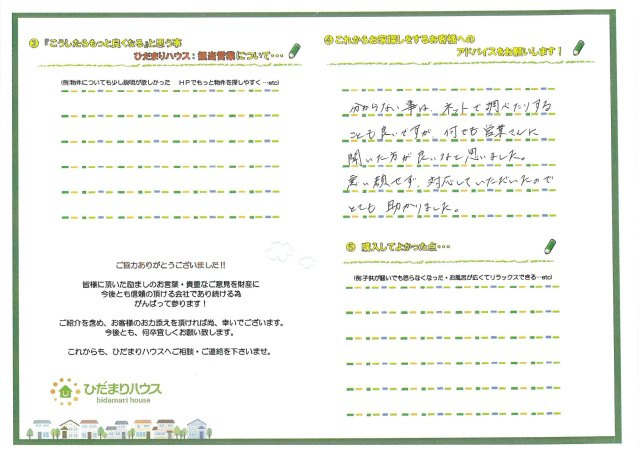 ③『こうしたらもっと良くなる』と思う事
ひだまりハウス：担当営業について・・・
(例:物件についても少し説明が欲しかった　HPでもっと物件を探しやすく…etc)
ご協力ありがとうございました!!
皆様に頂いた励ましのお言葉・貴重なご意見を財産に
今後とも信頼の頂ける会社であり続ける為
がんばって参ります！
ご紹介を含め、お客様のお力添えを頂ければ尚、幸いでございます。
今後とも、何卒宜しくお願い致します。
これからも、ひだまりハウスへご相談・ご連絡を下さいませ。
ひだまりハウス
hidamari house
④これからお家探しをするお客様への
アドバイスをお願いします！
分からない事は、ネットで調べたりする
ことも良いですが、何でも営業さんに
聞いた方が良いなと思いました。
悪い顔せず、対応していただいたので
とても助かりました。
⑤ 購入してよかった点・・・
(例:子供が騒いでも怒らなくなった・お風呂が広くてリラックスできる…etc)